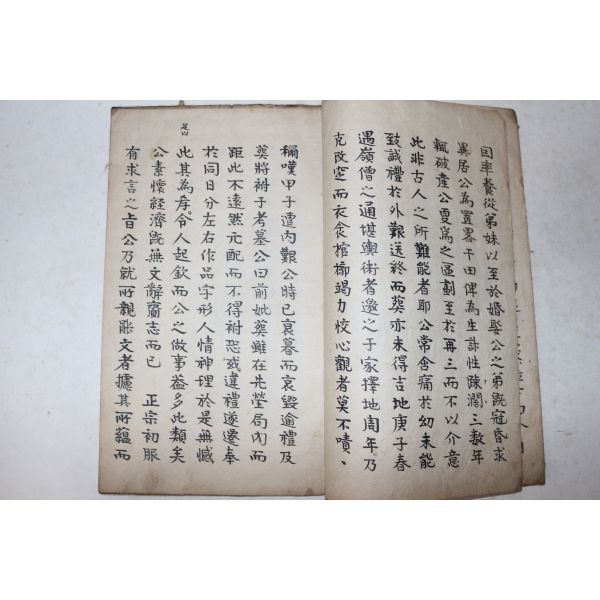 因率養從弟妹以至於婚娶公之弟旣冠昏求
異居公為置畧干田俾為生計性踈濶三數年
輒破産公更為之區劃至於再三而不以介意
此非古人之所難能者耶公常含痛於幼未能
致誠禮於外艱送終而葬亦未得吉地庚子春
遇嶺僧之通堪輿術者邀之于家擇地周年乃
克改窆而衣食棺槨竭力恔心觀者莫不嘖、
稱嘆甲子遭內艱公時已衰暮而哀毀逾禮及
葬將祔于考墓公曰前妣葬雖在先塋局內而
距此不遠然元配而不得祔恐或違禮遂遷奉
於同日分左右作品字形人情神理於是無憾
此其為孝令人起欽而公之做事益多此類矣
足以
公素懷経濟旣無文辭齎志而已 正宗初服
有求言之旨公乃就所親能文者據其所蘊而